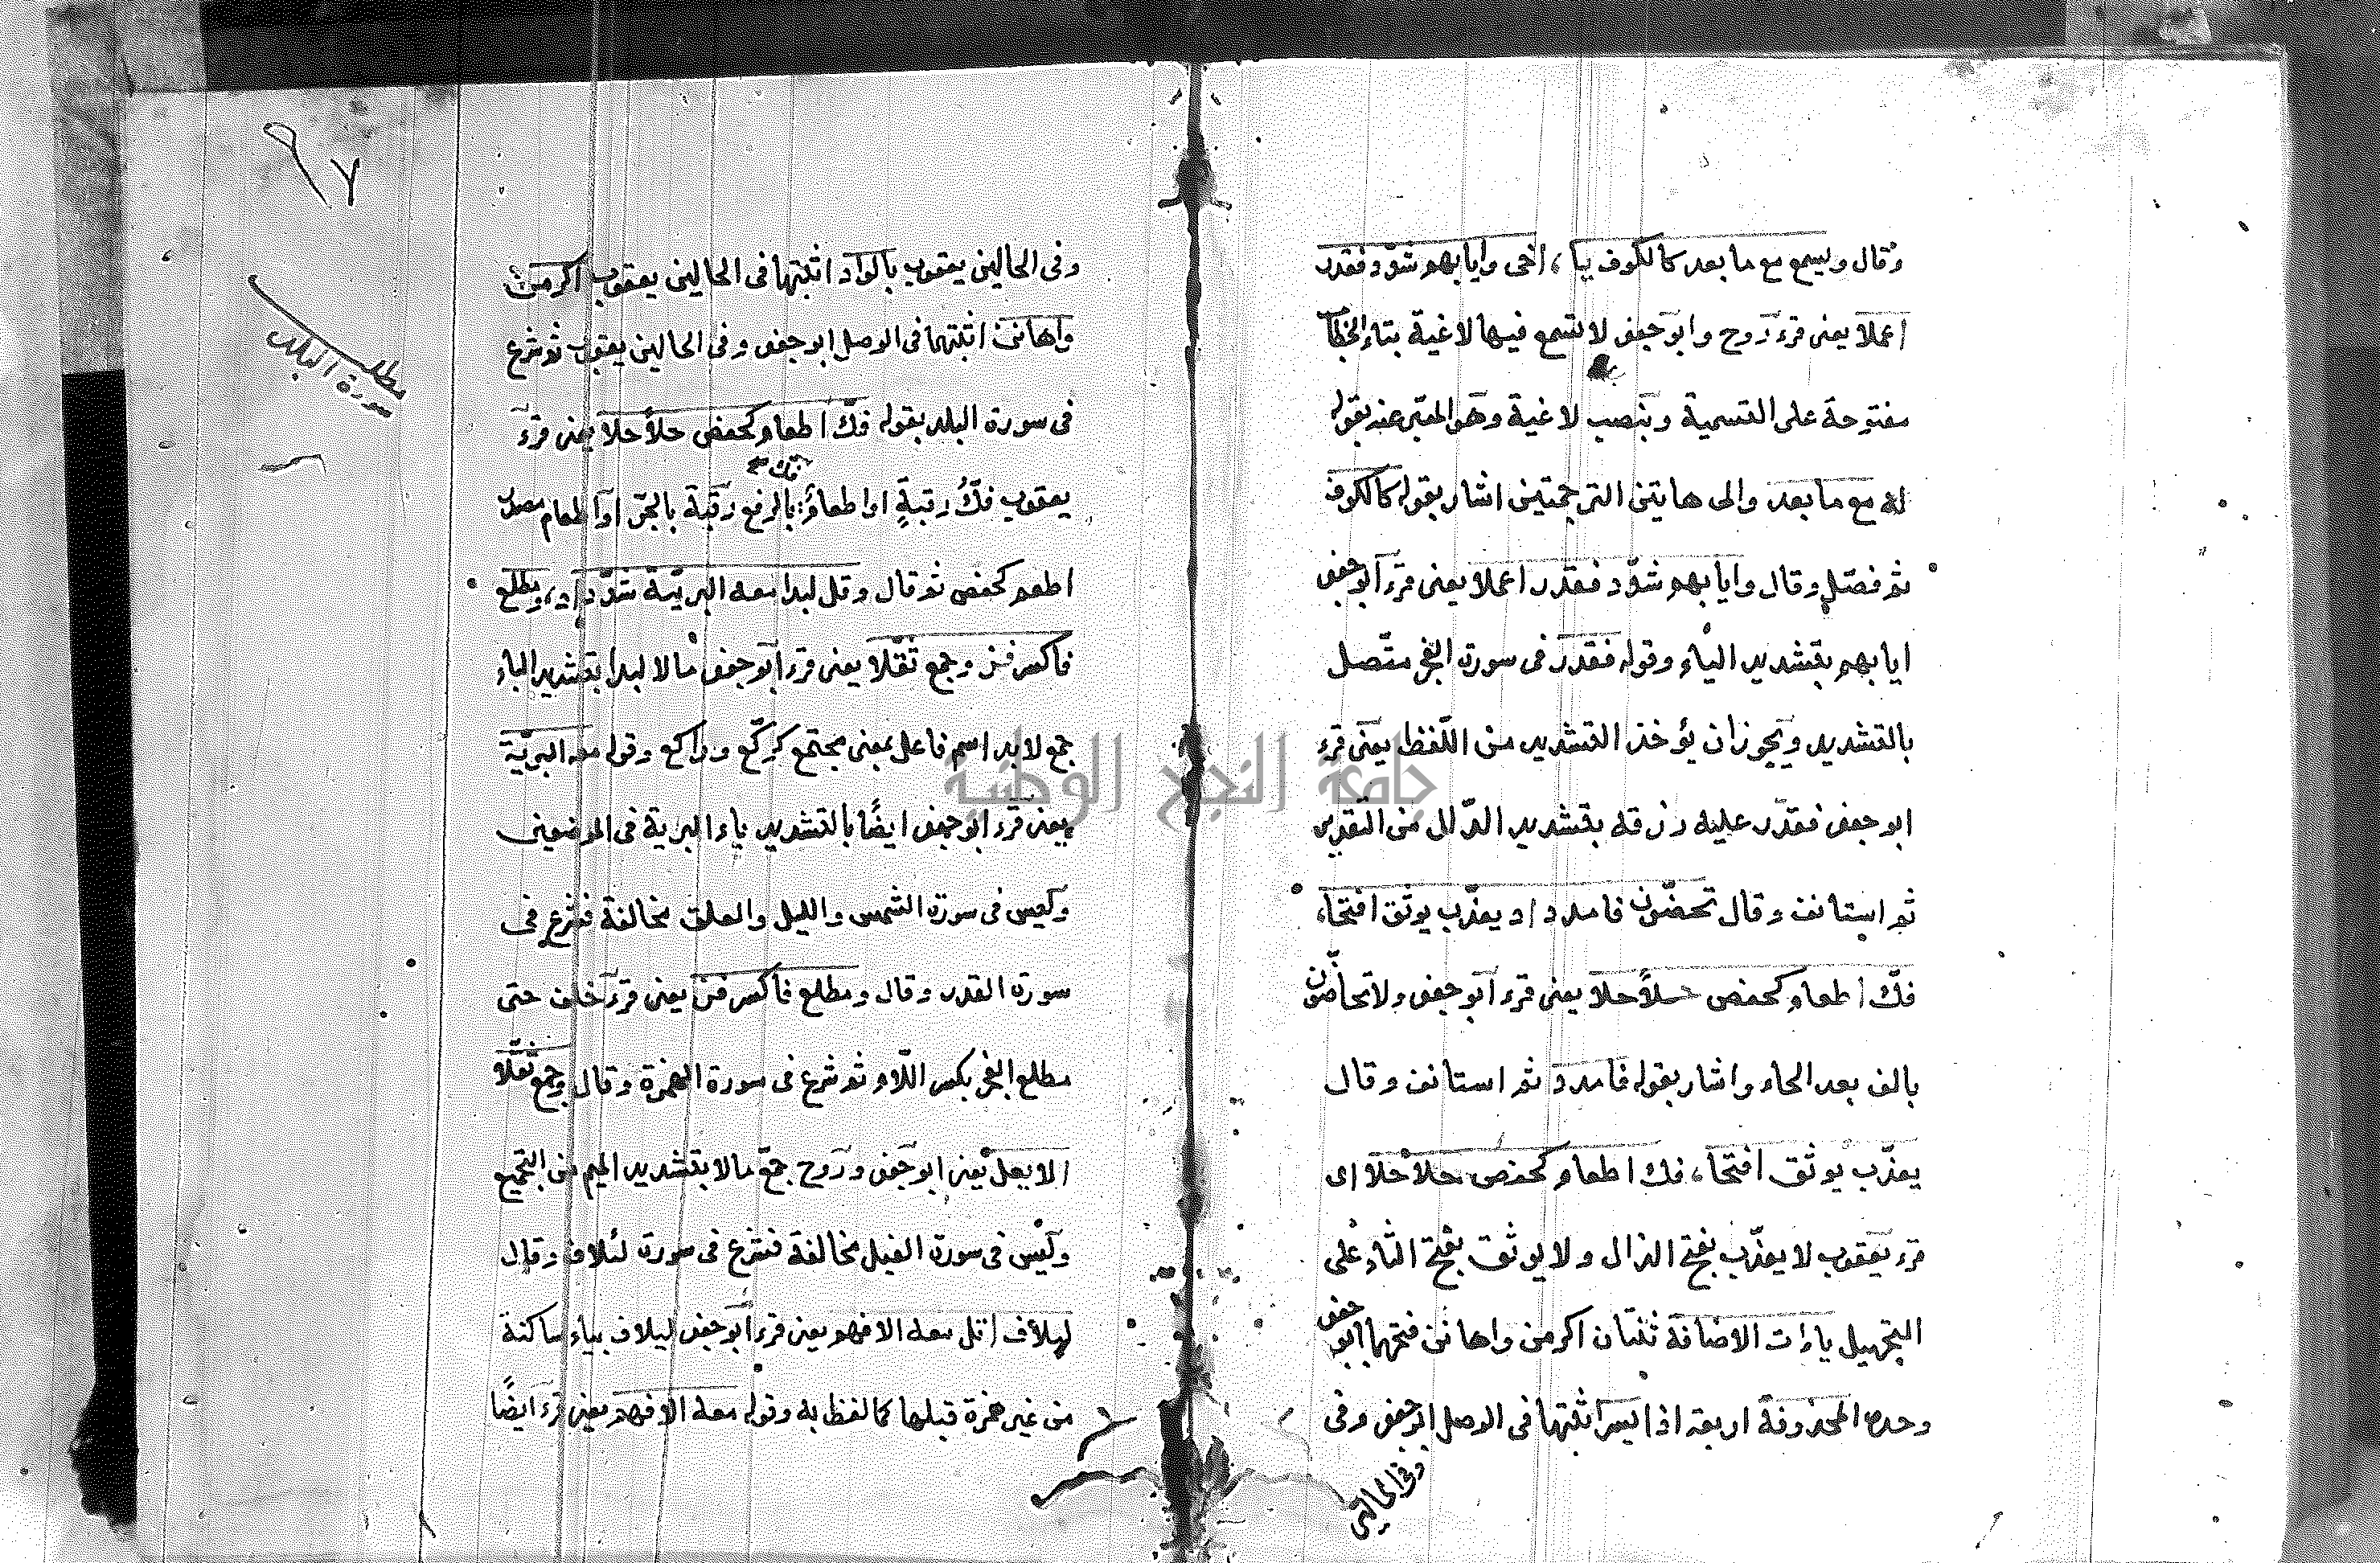 وقال ويسمع مع ما بعد كالكوف يا، اخى وايابهم شدّد فقدر
اعملا يعنى قرء روح وابو جعفر لا تسمع فيها لاغية بتاء الخطاب
مفتوحة على التسمية وبنصب لاغية وهو المعبّر عنه بقوله
له مع ما بعد والى هاتين الترجمتين اشار بقوله كالكوف
ثم فصّل وقال وايابهم شدّد فقدر اعملا يعنى قرء ابو جعفر
ايابهم بتشديد الياء وقوله فقدر فى سورة الفجر متّصل
بالتشديد ويجوز ان يؤخذ التشديد من اللّفظ يعنى قرء
ابو جعفر فقدّر عليه رزقه بتشديد الدّال من التقدير
ثم استانف وقال تحضّون فامدد اد يعذّب يوثق افتحا،
فكّ اطعام كحفص حلاً حلا يعنى قرء ابو جعفر ولا تحاضّون
بالف بعد الحاء واشار بقوله فامدد ثم استانف وقال
يعذّب يوثق افتحا، فك اطعام كحفص حلاً حلا اى
قرء يعقوب لا يعذّب بفتح الذال ولا يوثق بفتح الثاء على
التجهيل ياءات الاضافة ثنتان اكرمن واهانن فتحهما ابو جعفر
وحده المحذوفة اربعة اذا يسر اثبتها فى الوصل ابو جعفر وفى
وفى الحالين
٩٧
وفى الحالين يعقوب بالواد اثبتها فى الحالين يعقوب اكرمن
واهانن اثبتهما فى الوصل ابو جعفر وفى الحالين يعقوب ثم شرع
مطلب
سورة البلد
فى سورة البلد بقوله فكّ اطعام كحفص حلاً حلا يعنى قرء
يعقوب فكُّ رقبةٍ او اطعامٌ بالرفع رقبة بالجرّ او اطعام مصدر
فك
اطعم كحفص ثم قال وقل لبدا معه البريّة شدّد اد، ومطلع
فاكسر فز وجمع ثقّلا يعنى قرء ابو جعفر مالا لبدا بتشديد الباء
جمع لابد اسم فاعل بمعنى مجتمع كركّع وراكع وقوله معه البريّة
يعنى قرء ابو جعفر ايضًا بالتشديد ياء البرية فى الموضعين
وليس فى سورة الشمس والليل والعلق مخالفة فشرع فى
سورة القدر وقال ومطلع فاكسر فز يعنى قرء خلف حتى
مطلع الفجر بكسر اللّام ثم شرع فى سورة الهمزة وقال وجمع ثقّلا
الا يعل يعنى ابو جعفر وروح جمّع مالا بتشديد الميم من التجميع
وليس فى سورة الفيل مخالفة فشرع فى سورة لئلاف وقال
ليلاف اتل معه الافهم يعنى قرء ابو جعفر ليلاف بياء ساكنة
من غير همزة قبلها كما لفظ به وقوله معه الافهم يعنى قرء ايضًا
جامعة النجاح الوطنية